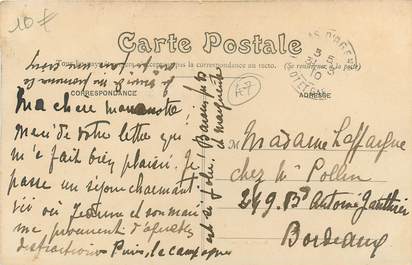 10 F
Carte Postale
Tous les pays étrangers n'acceptent pas la correspondance au recto. (Se renseigner à la poste)
CORRESPONDANCE
ADRESSE
Ma chère
merci de votre lettre qui
m'a fait bien plaisir. Je
passe un séjour charmant
ici où Jeanne et son mari
me procurent d'agréables
distractions. Puis, la campagne
est si jolie! Baisers
et marguerite
M
Madame Laffargue
chez Mr Pollin
249. Bd Antoine Gauthier
Bordeaux